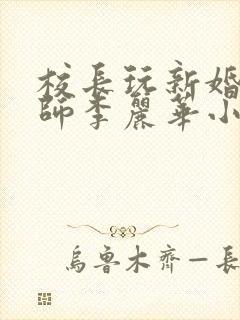 校長玩新婚
師李麗華小
烏魯木齊一長